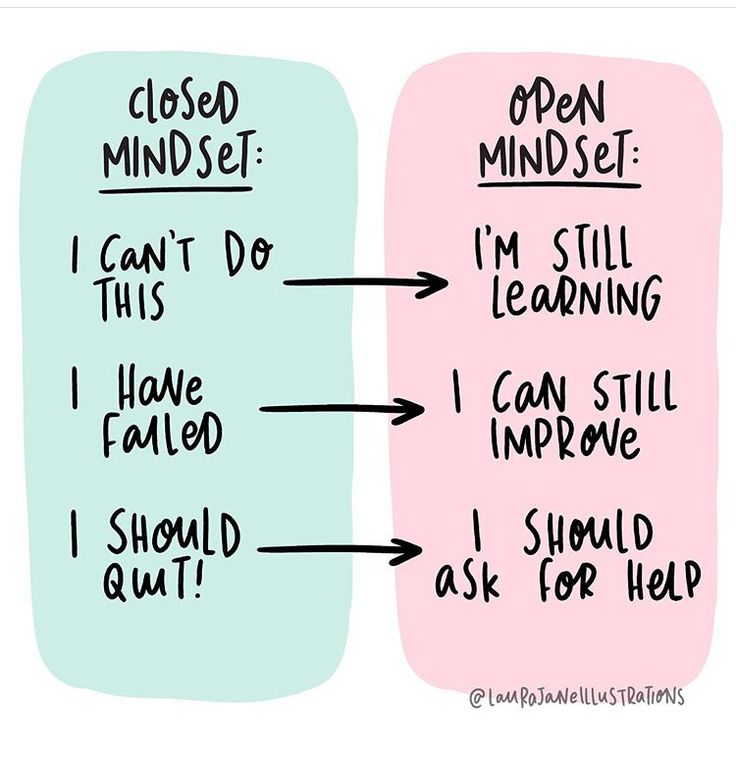 CLOSED
MINDSET:
I CAN'T DO
THIS
I HAVE
FAILED
I SHOULD
QUIT!
OPEN
MINDSET:
I'M STILL
LEARNING
I CAN STILL
IMPROVE
I SHOULD
ASK FOR HELP
@LAURAJANEILLUSTRATIONS